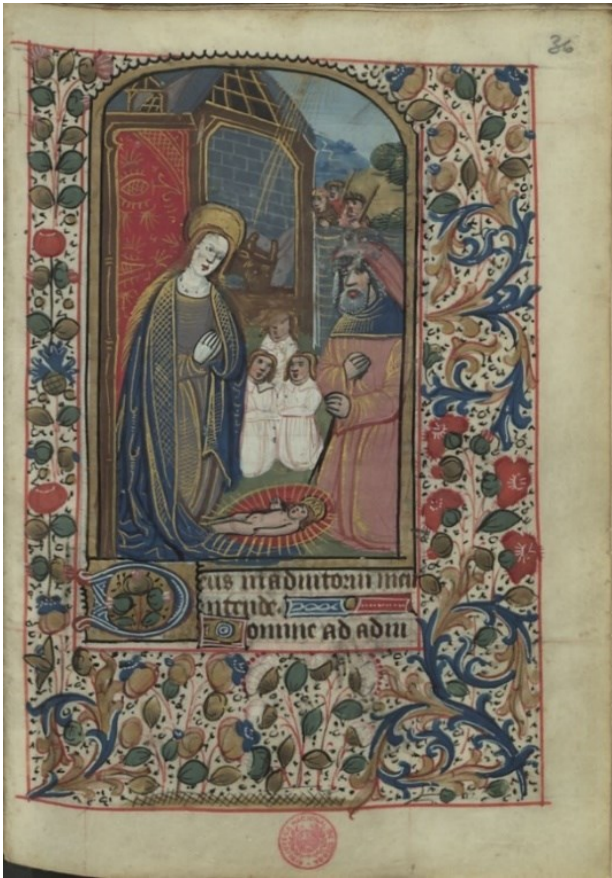 36
Deus in adiutoriu meu
intende.
Domine ad adiu